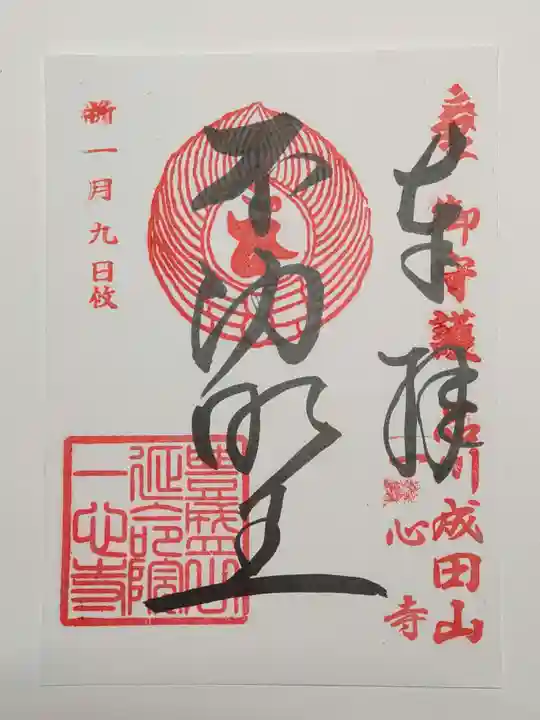 奉拝
御守護 品川成田山
一心寺
不動明王
一月九日攸
豊盛山
延命院
一心寺